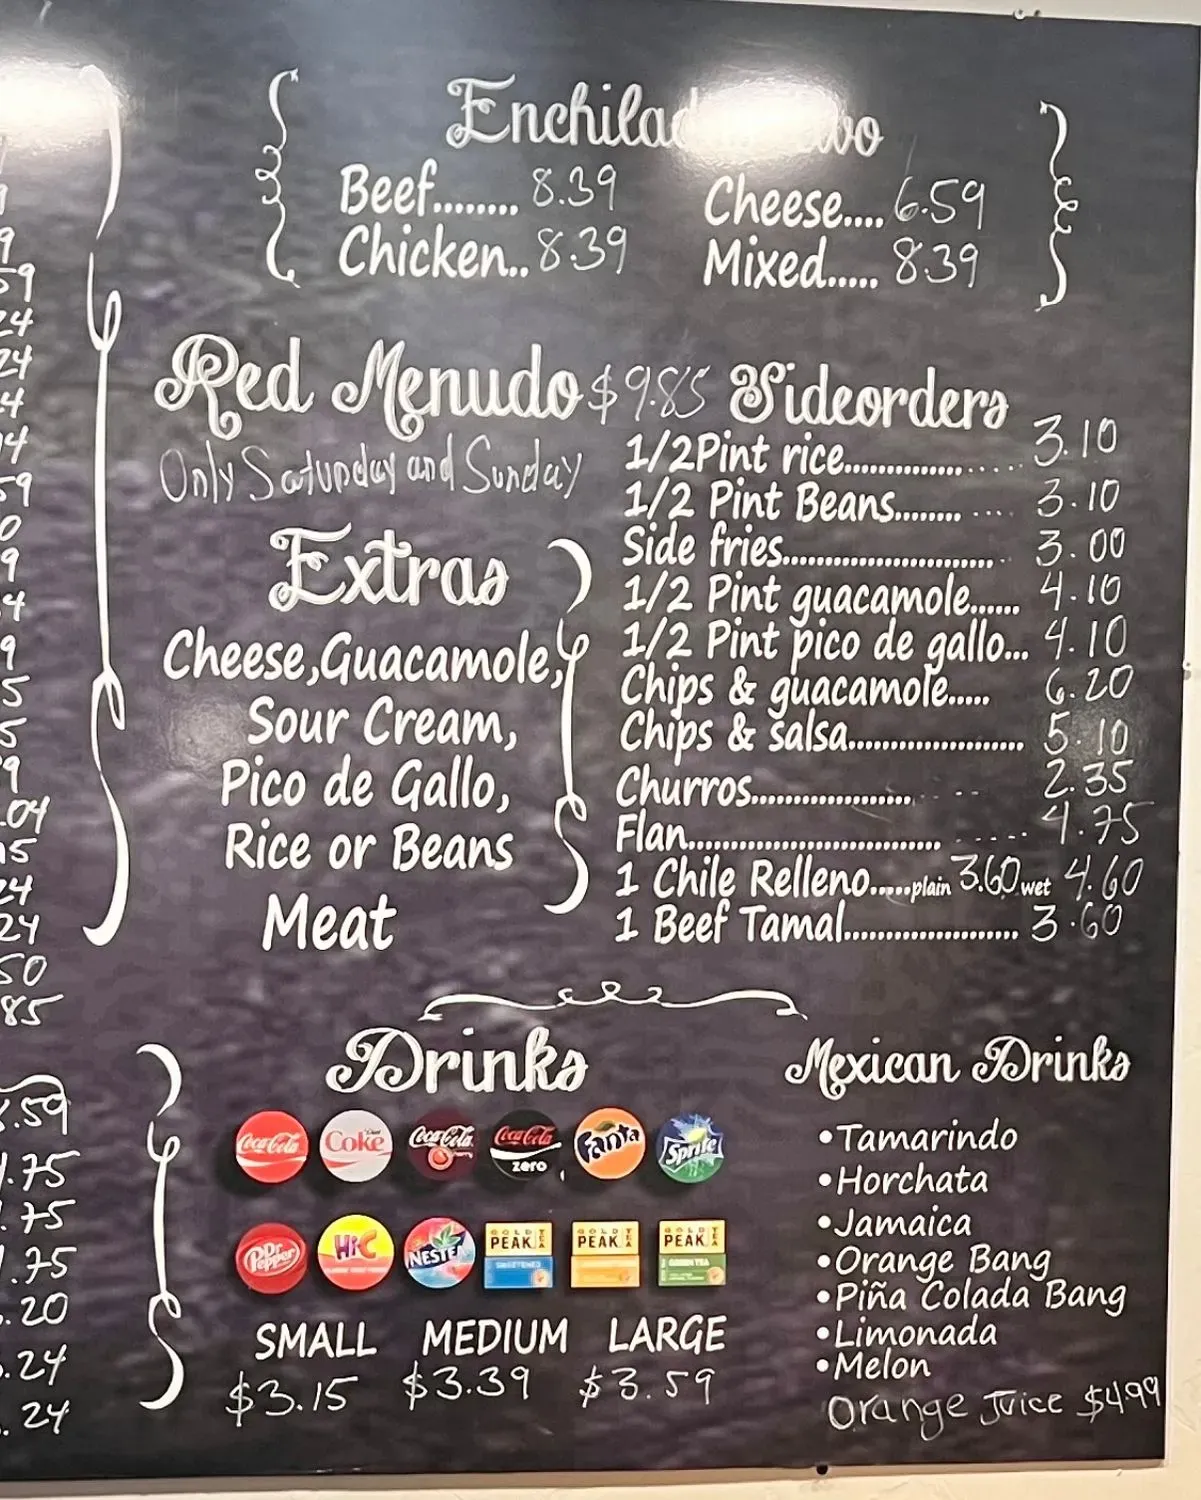 Beef........ 8.39
Chicken.. 8.39
Cheese.... 6.59
Mixed..... 8.39
Red Menudo $9.85
Only Saturday and Sunday
Extras
Cheese,Guacamole,
Sour Cream,
Pico de Gallo,
Rice or Beans
Meat
Sideorders
1/2Pint rice.................. 3.10
1/2 Pint Beans............ 3.10
Side fries.......................... 3.00
1/2 Pint guacamole...... 4.10
1/2 Pint pico de gallo... 4.10
Chips & guacamole..... 6.20
Chips & salsa...................... 5.10
Churros...................... 2.35
Flan.................................. 4.75
1 Chile Relleno.....plain 3.60 wet 4.60
1 Beef Tamal...................... 3.60
Drinks
Coca-Cola Diet Coke Coca-Cola Cherry Coca-Cola zero Fanta Sprite
Dr Pepper Hi-C NESTEA GOLD PEAK TEA SWEETENED GOLD PEAK TEA GOLD PEAK TEA GREEN TEA
SMALL MEDIUM LARGE
$3.15 $3.39 $3.59
Mexican Drinks
•Tamarindo
•Horchata
•Jamaica
•Orange Bang
•Piña Colada Bang
•Limonada
•Melon
Orange Juice $4.99